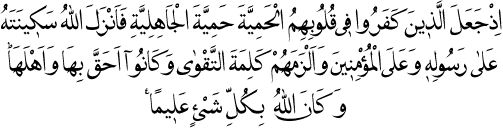 اِذْ جَعَلَ الَّذِينَ كَفَرُوا فِي قُلُوبِهِمُ الْحَمِيَّةَ حَمِيَّةَ الْجَاهِلِيَّةِ فَاَنْزَلَ اللهُ سَكِينَتَهُ
عَلٰى رَسُولِهِ وَعَلَى الْمُؤْمِنِينَ وَاَلْزَمَهُمْ كَلِمَةَ التَّقْوٰى وَكَانُوٓا اَحَقَّ بِهَا وَاَهْلَهَاؕ
وَكَانَ اللهُ بِكُلِّ شَيْءٍ عَلِيمًا